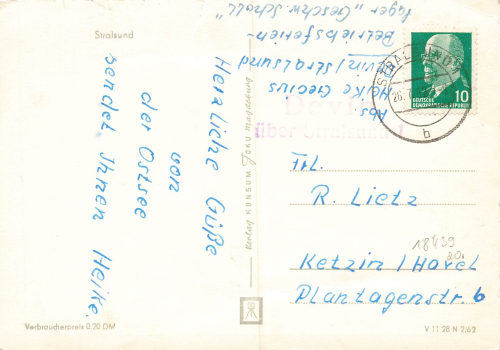 Stralsund
Herzliche Grüße
von
der Ostsee
sendet Ihnen Heike.
Abs. Heike
Devin/Stralsund
Betriebsferien-
lager "Geschw. Scholl"
Verlag KONSUM FOKU Magdeburg
DEUTSCHE
DEMOKRATISCHE REPUBLIK
10
STRALSUND
b
Devin
über Stralsund 1
Frl.
R. Lietz
Ketzin / Havel
Plantagenstr. 6
18439
20.
Verbraucherpreis 0,20 DM
V 11 28 N 2/62